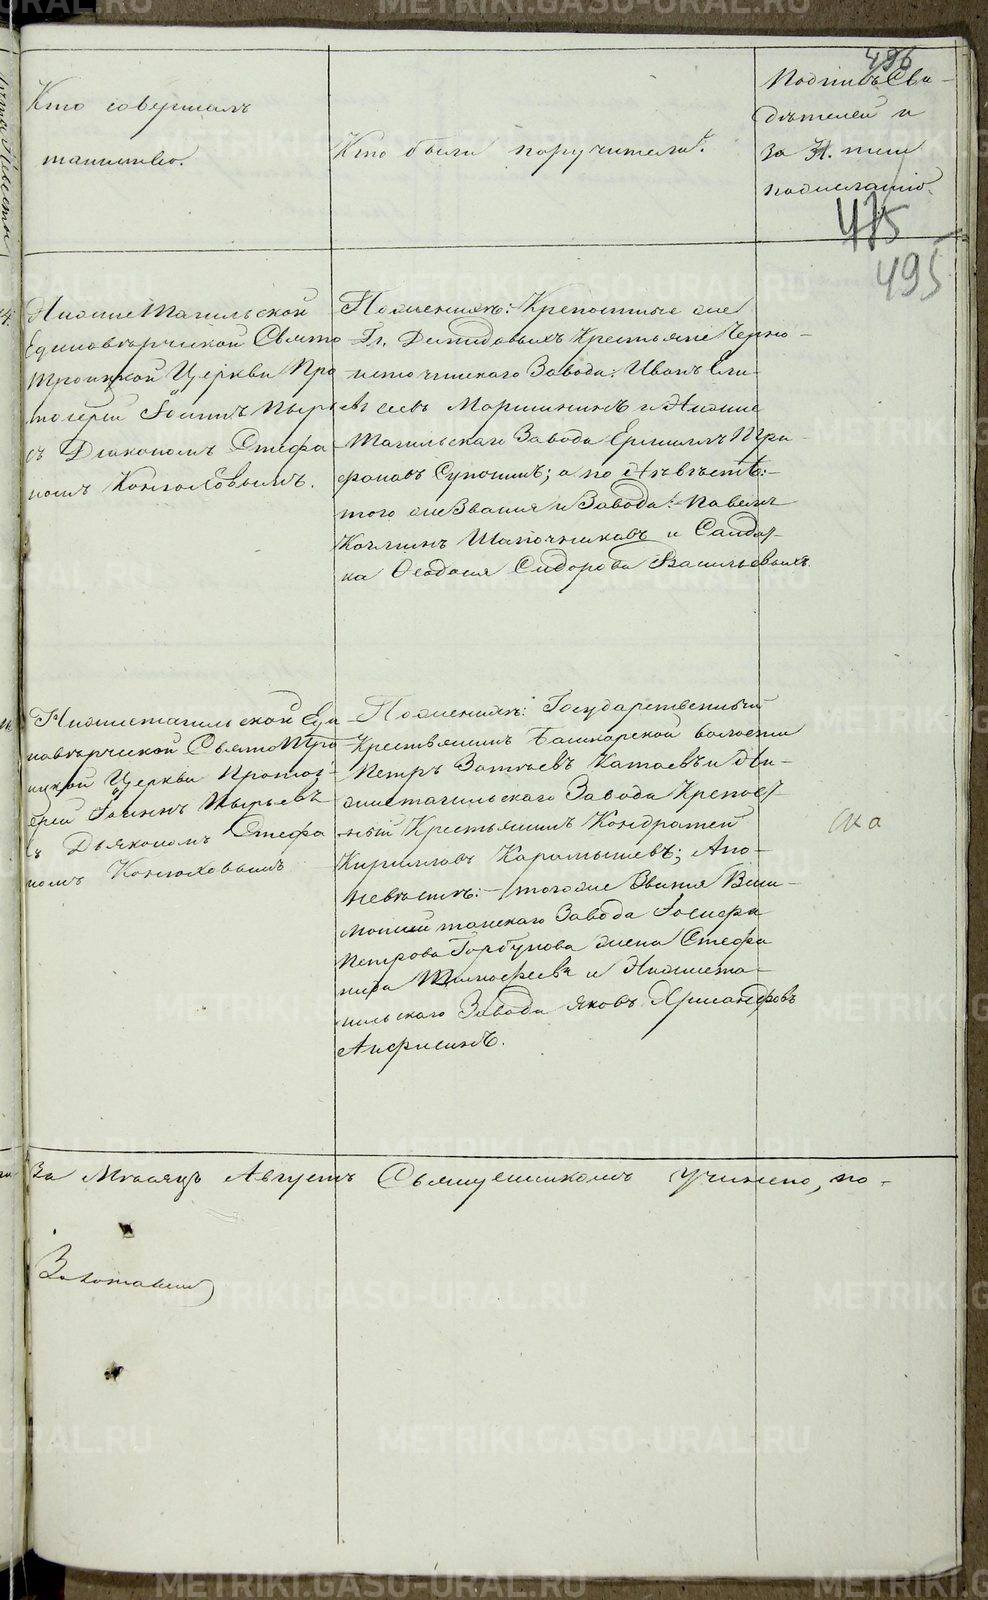 496
Кто совершалъ
таинство.
Кто были поручители.
Подписъ Сви-
дѣтелей и
за н. ими
по желанію.
475
495
Нижне Тагильской
Единовѣрческой Свято
Троицкой Церкви Про
тоіерей Іоаннъ Пырь
съ Діакономъ Стефа
номъ Конюховымъ.
По жениху: Крепостные же
Гг. Демидовыхъ Крестьяне Черно-
источинскаго Завода: Иванъ Ели-
сеевъ Маршининъ и Нижне
Тагильскаго Завода Ермилъ Три-
фоновъ Сунонинъ; а по невѣстѣ:-
того же Званія и Завода: Павелъ
Шапочниковъ и Салдат-
ка Феодосія Сидорова Васильевыхъ.
Нижнетагильской Еди
новѣрческой СвятоТро
ицкой Церкви Протоі-
ерей Іоаннъ Пырьевъ
съ Дьякономъ Стефа
номъ Конюховымъ
По жениху: Государственный
Крестьянинъ Башкарской волости
Петръ Зотѣевъ Катаевъ и Ни-
жнетагильскаго Завода Крепост-
ный Крестьянинъ Кондратей
Кириловъ Карамышевъ; Апо-
невѣстѣ:- тогоже Званія Виси-
моши танскаго Завода Іосифа
Петрова Горбунова жена Стефа
нида Тимофеева и Нижнета-
гильскаго Завода Яковъ Хрисанфовъ
Анфисинъ.
За Мѣсяцъ Августъ Священникомъ Учинено, по-
METRIKI.GASO-URAL.RU